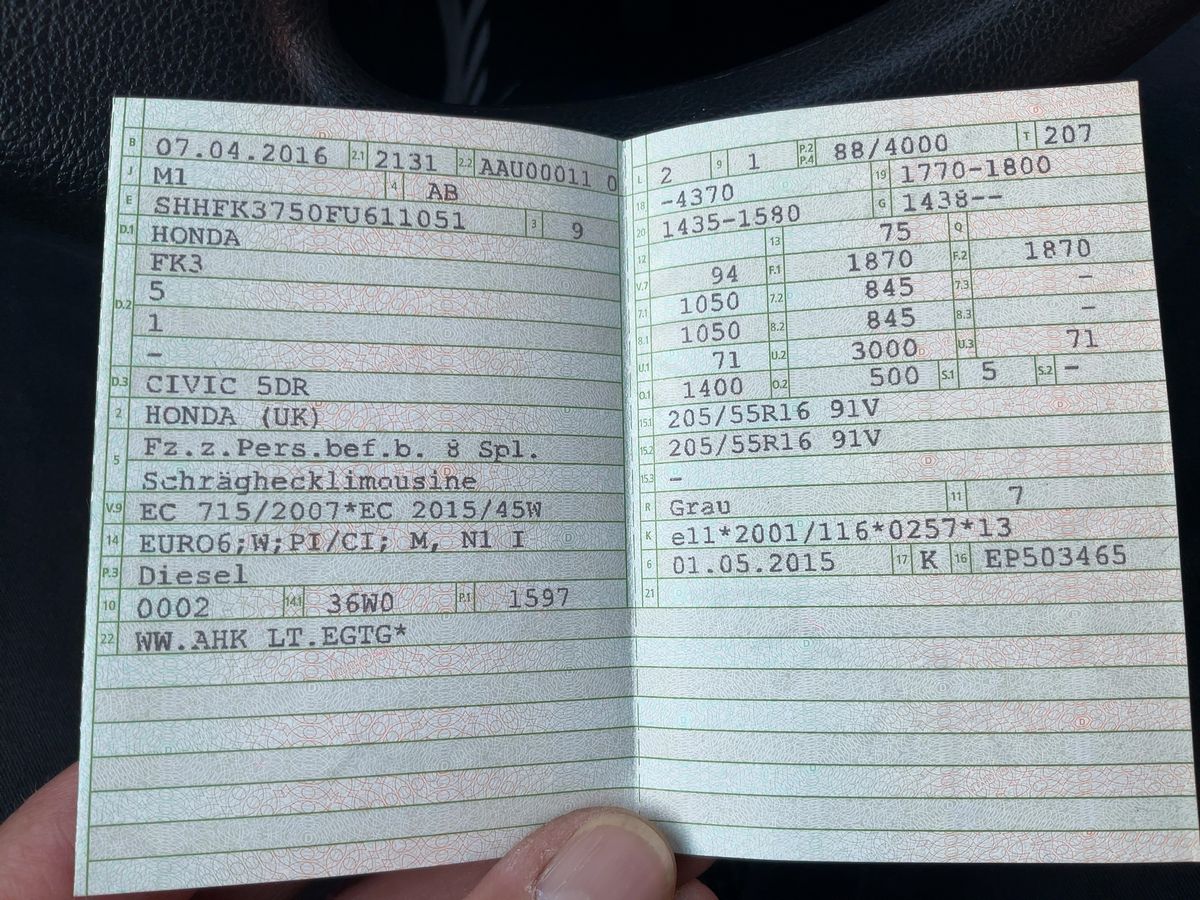 B 07.04.2016 2.1 2131 2.2 AAU00011 0
J M1 4 AB
E SHHFK3750FU611051 3 9
D.1 HONDA
D.2 FK3
5
1
-
D.3 CIVIC 5DR
2 HONDA (UK)
5 Fz.z.Pers.bef.b. 8 Spl.
Schräghecklimousine
V.9 EC 715/2007*EC 2015/45W
14 EURO6;W;PI/CI; M, N1 I
P.3 Diesel
10 0002 14.1 36W0 P.1 1597
22 WW.AHK LT.EGTG*
L 2 9 1 P.2 P.4 88/4000 T 207
18 -4370 19 1770-1800
20 1435-1580 G 1438--
12 13 75 Q
V.7 94 F.1 1870 F.2 1870
7.1 1050 7.2 845 7.3 -
8.1 1050 8.2 845 8.3 -
U.1 71 U.2 3000 U.3 71
O.1 1400 O.2 500 S.1 5 S.2 -
15.1 205/55R16 91V
15.2 205/55R16 91V
15.3 -
R Grau 11 7
K e11*2001/116*0257*13
6 01.05.2015 17 K 16 EP503465
21